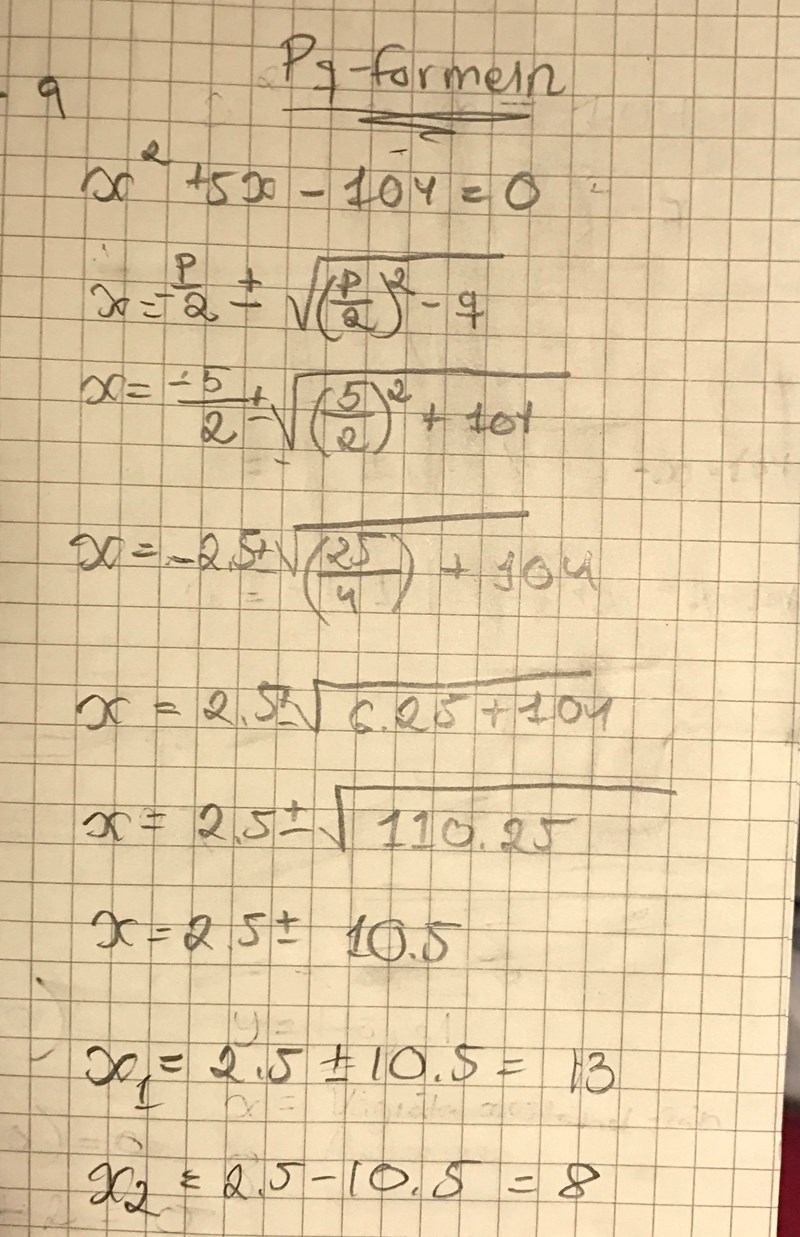 Pq-formeln
- 9
x² +5x - 104 = 0
x = -p/2 ± √((p/2)² - q)
x = -5/2 ± √((5/2)² + 104)
x = -2.5 ± √((25/4) + 104)
x = 2.5 ± √(6.25 + 104)
x = 2.5 ± √(110.25)
x = 2.5 ± 10.5
x₁ = 2.5 ± 10.5 = 13
x₂ = 2.5 - 10.5 = 8